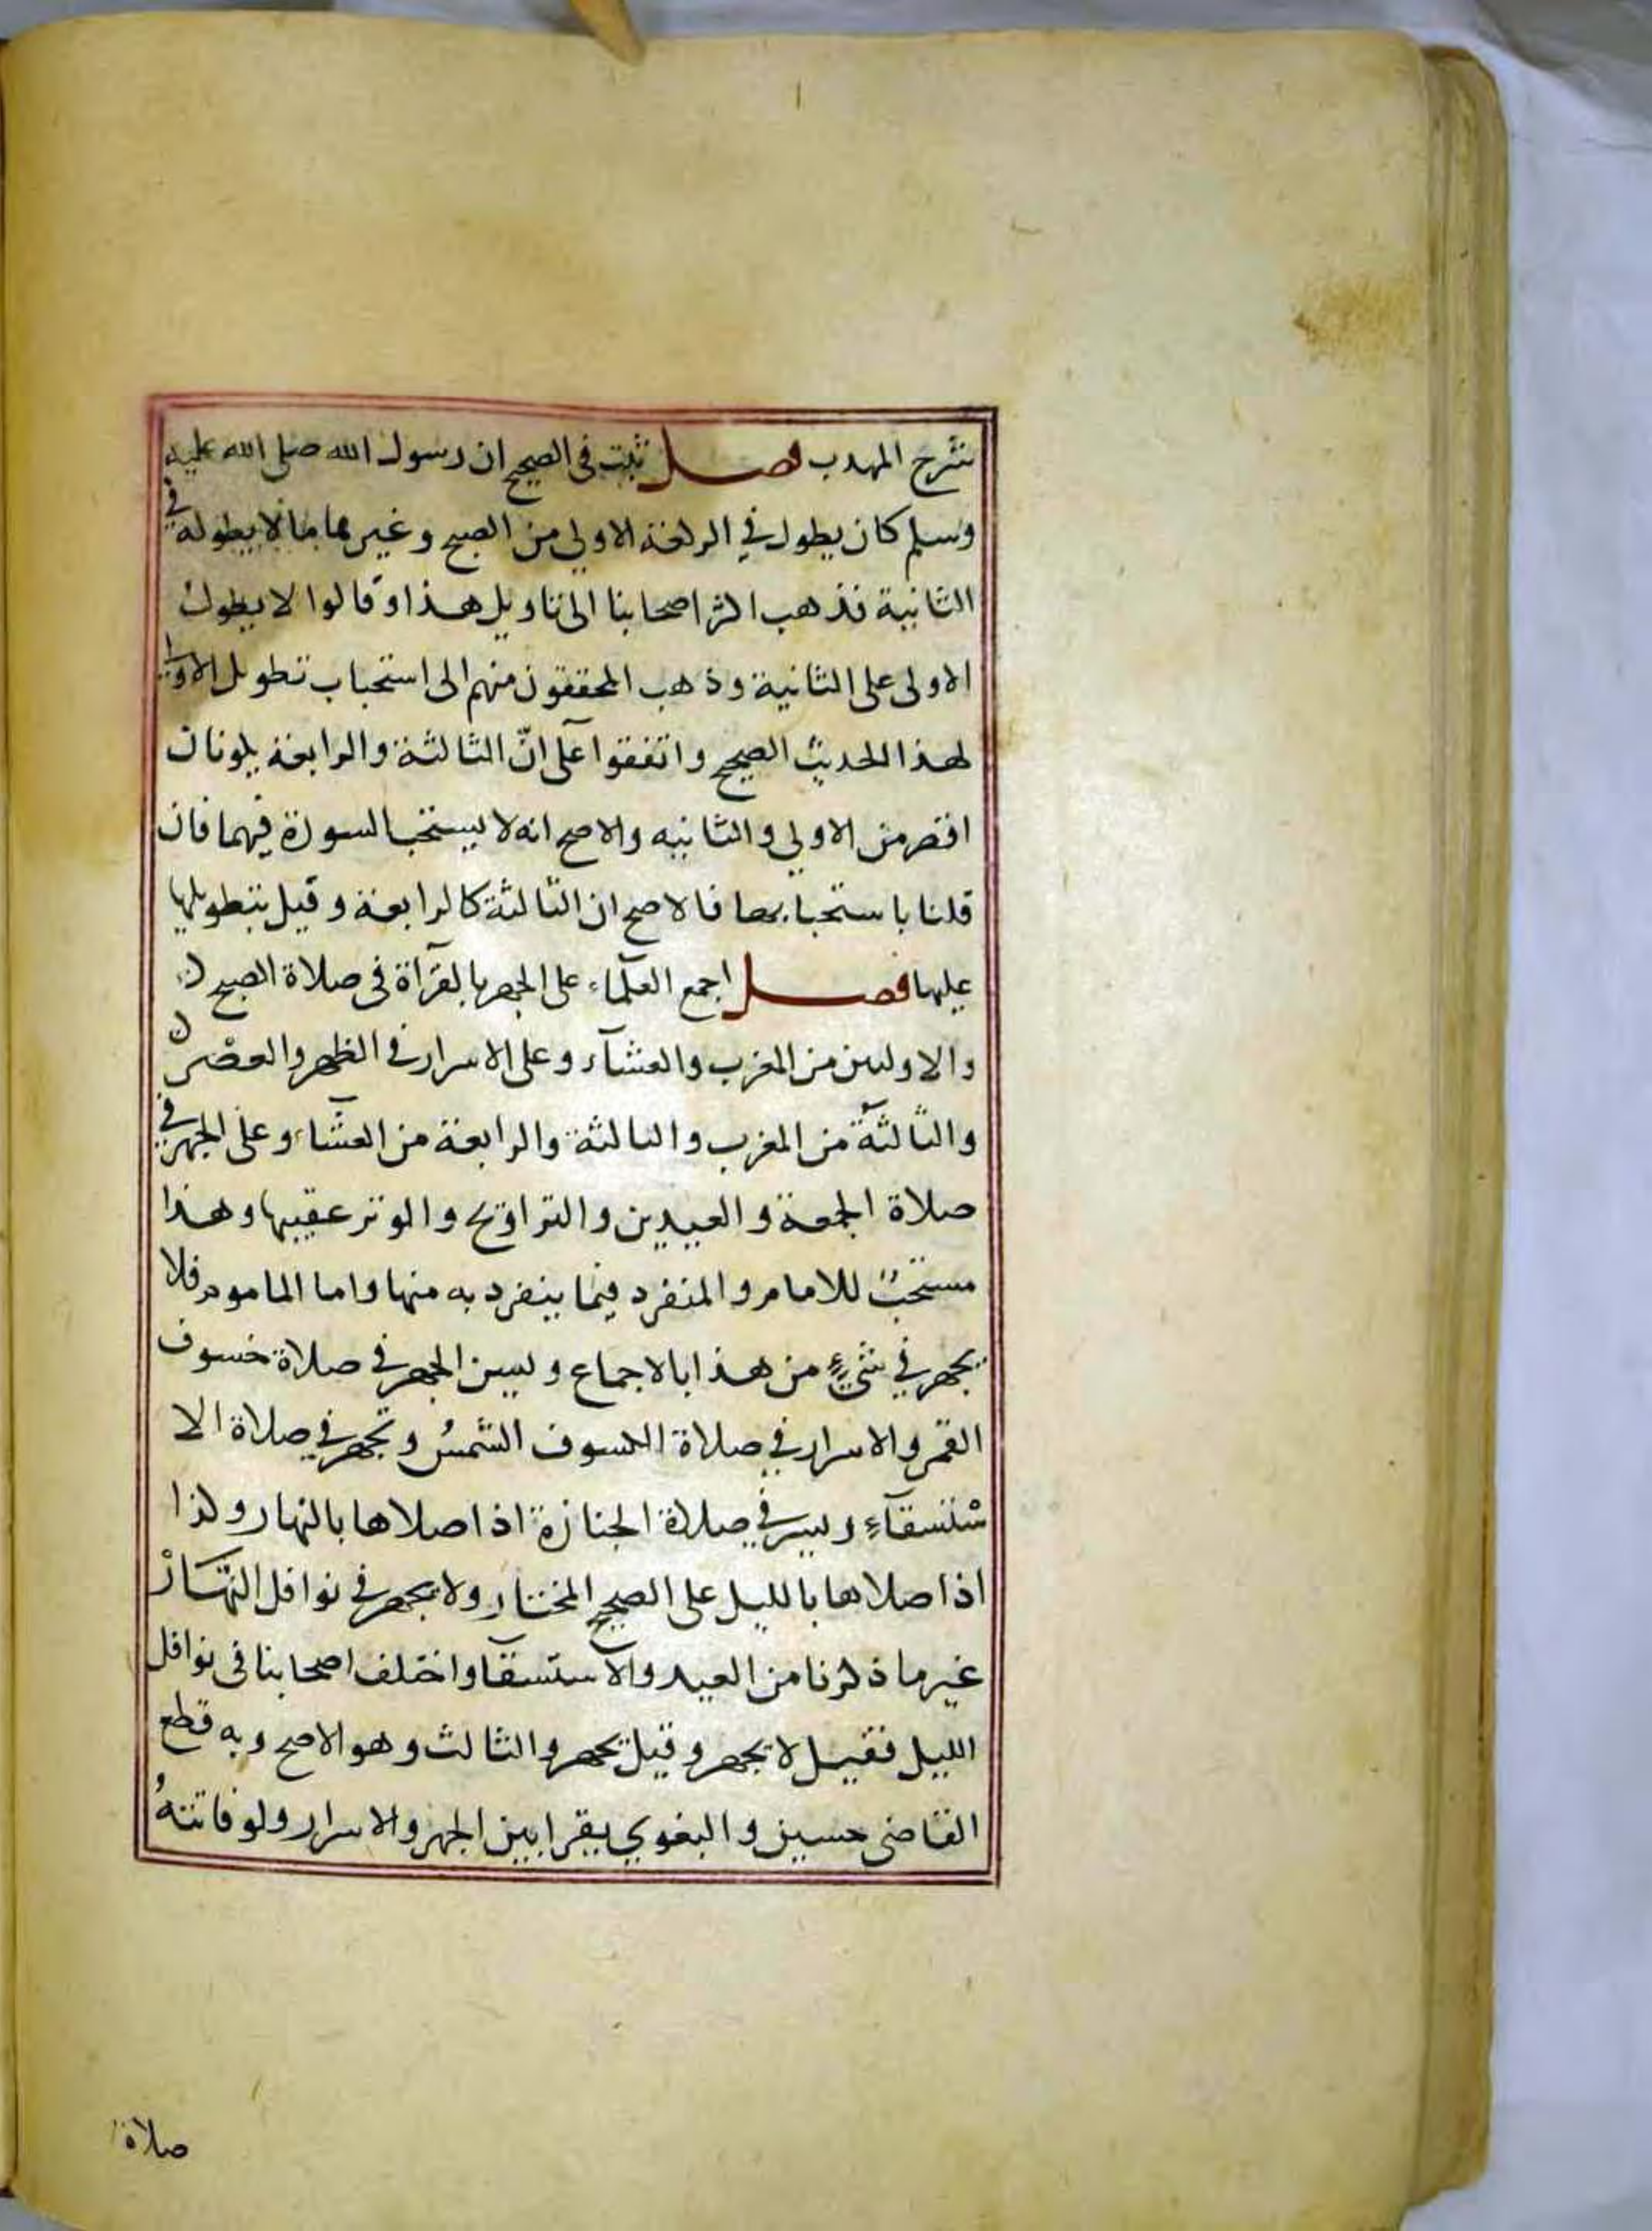 شرح المهدب فصل ثبت فى الصحيح ان رسول الله صلى الله عليه
وسلم كان يطول في الركعة الاولى من الصبح وغيرها ما لا يطوله في
الثانية فذهب اكثر اصحابنا الى تاويل هذا وقالوا لا يطول
الاولى على الثانية وذهب المحققون منهم الى استحباب تطويل الاولى
لهذا الحديث الصحيح واتفقوا على انّ الثالثة والرابعة يكونان
اقصر من الاولى والثانيه والاصح انه لا يستحب السورة فيهما فان
قلنا باستحبابها فالاصح ان الثالثة كالرابعة وقيل بتطويلها
عليها فصل اجمع العلمآء على الجهر بالقرآة فى صلاة الصبح
والاوليين من المغرب والعشآء وعلى الاسرار في الظهر والعصر
والثالثة من المغرب والثالثة والرابعة من العشآء وعلى الجهر في
صلاة الجمعة والعيدين والتراويح والوتر عقيبها وهذا
مستحبّ للامام والمنفرد فيما ينفرد به منها واما الماموم فلا
يجهر في شيءٍ من هذا بالاجماع ويسن الجهر في صلاة خسوف
القمر والاسرار في صلاة الكسوف الشمس ويجهر في صلاة الا
ستسقآءِ ويسر في صلاة الجنازة اذا صلاها بالنهار وكذا
اذا صلاها بالليل على الصحيح المختار ولا يجهر في نوافل النهار
غير ما ذكرنا من العيد والآستسقآ واختلف اصحابنا فى نوافل
الليل فقيل لا يجهر وقيل يجهر والثالث وهو الاصح وبه قطع
القاضى حسين والبغوي يقرا بين الجهر والاسرار ولو فاتتهُ
صلاة